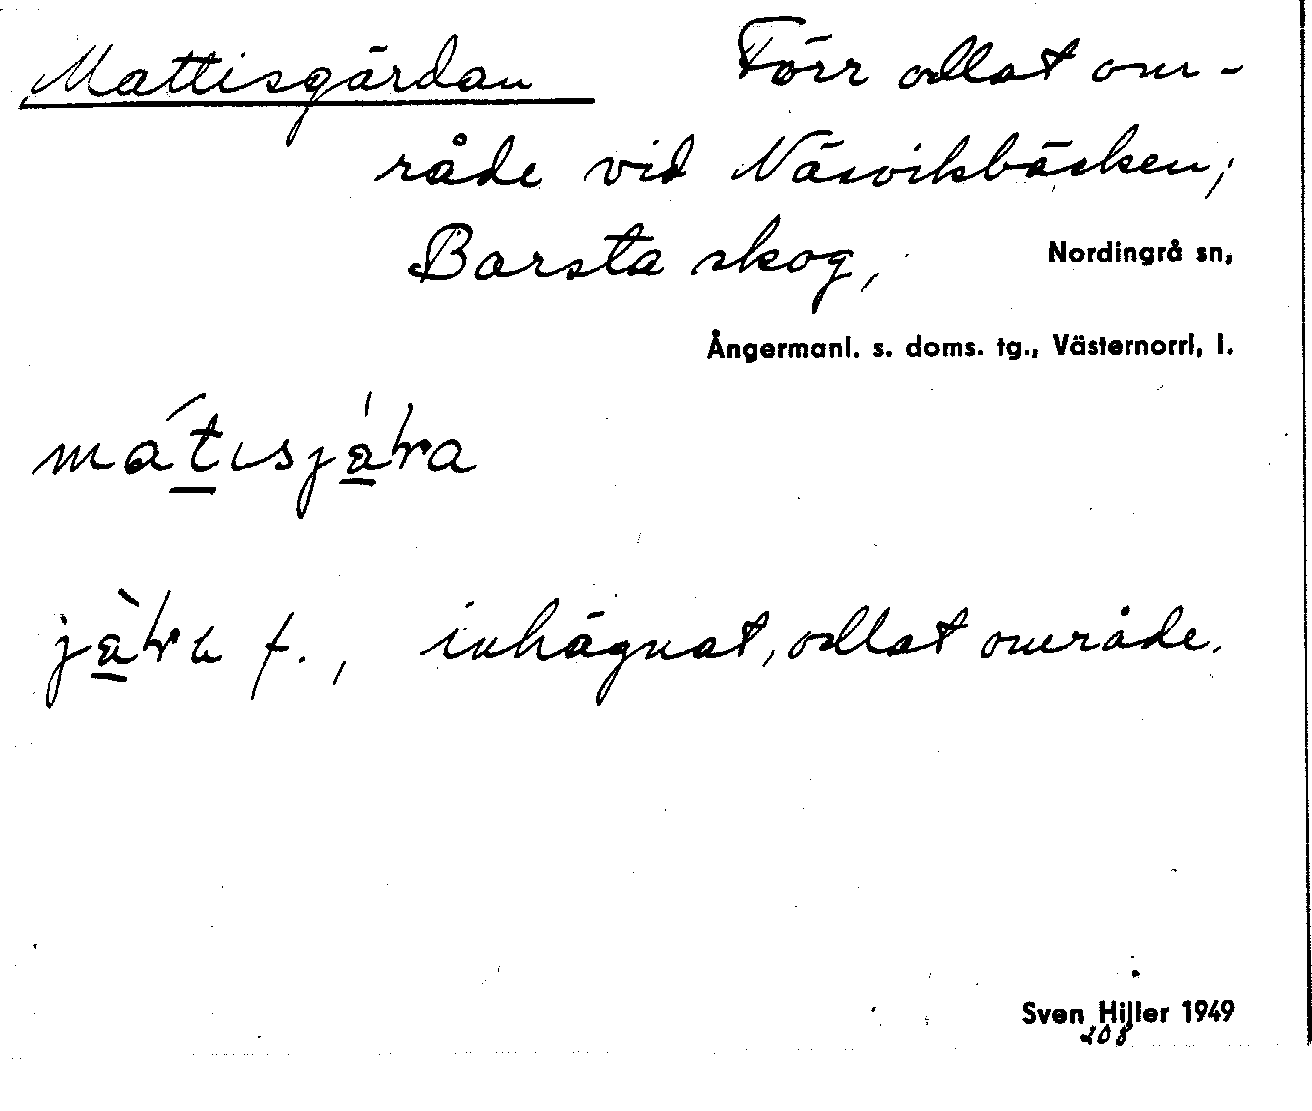 Mattisgärdan Förr odlat om-
råde vid Näsviksbäcken;
Barsta skog, Nordingrå sn,
Ångermanl. s. doms. tg., Västernorrl, l.
f., inhägnat, odlat område.
Sven Hiller 1949
208